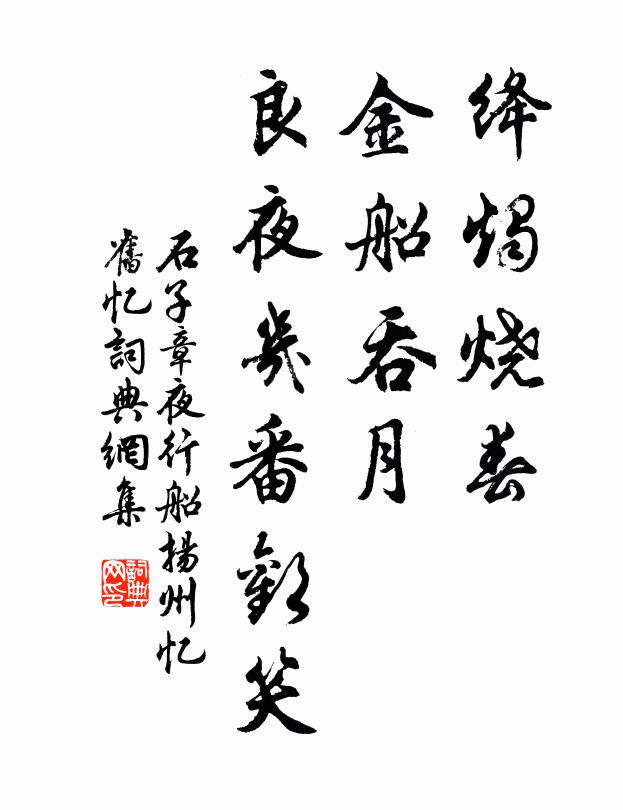 绛燭烧春
金船吞月
良夜幾番歡笑
石子章夜行船揚州忆
舊忆詞典網集
詞典网印